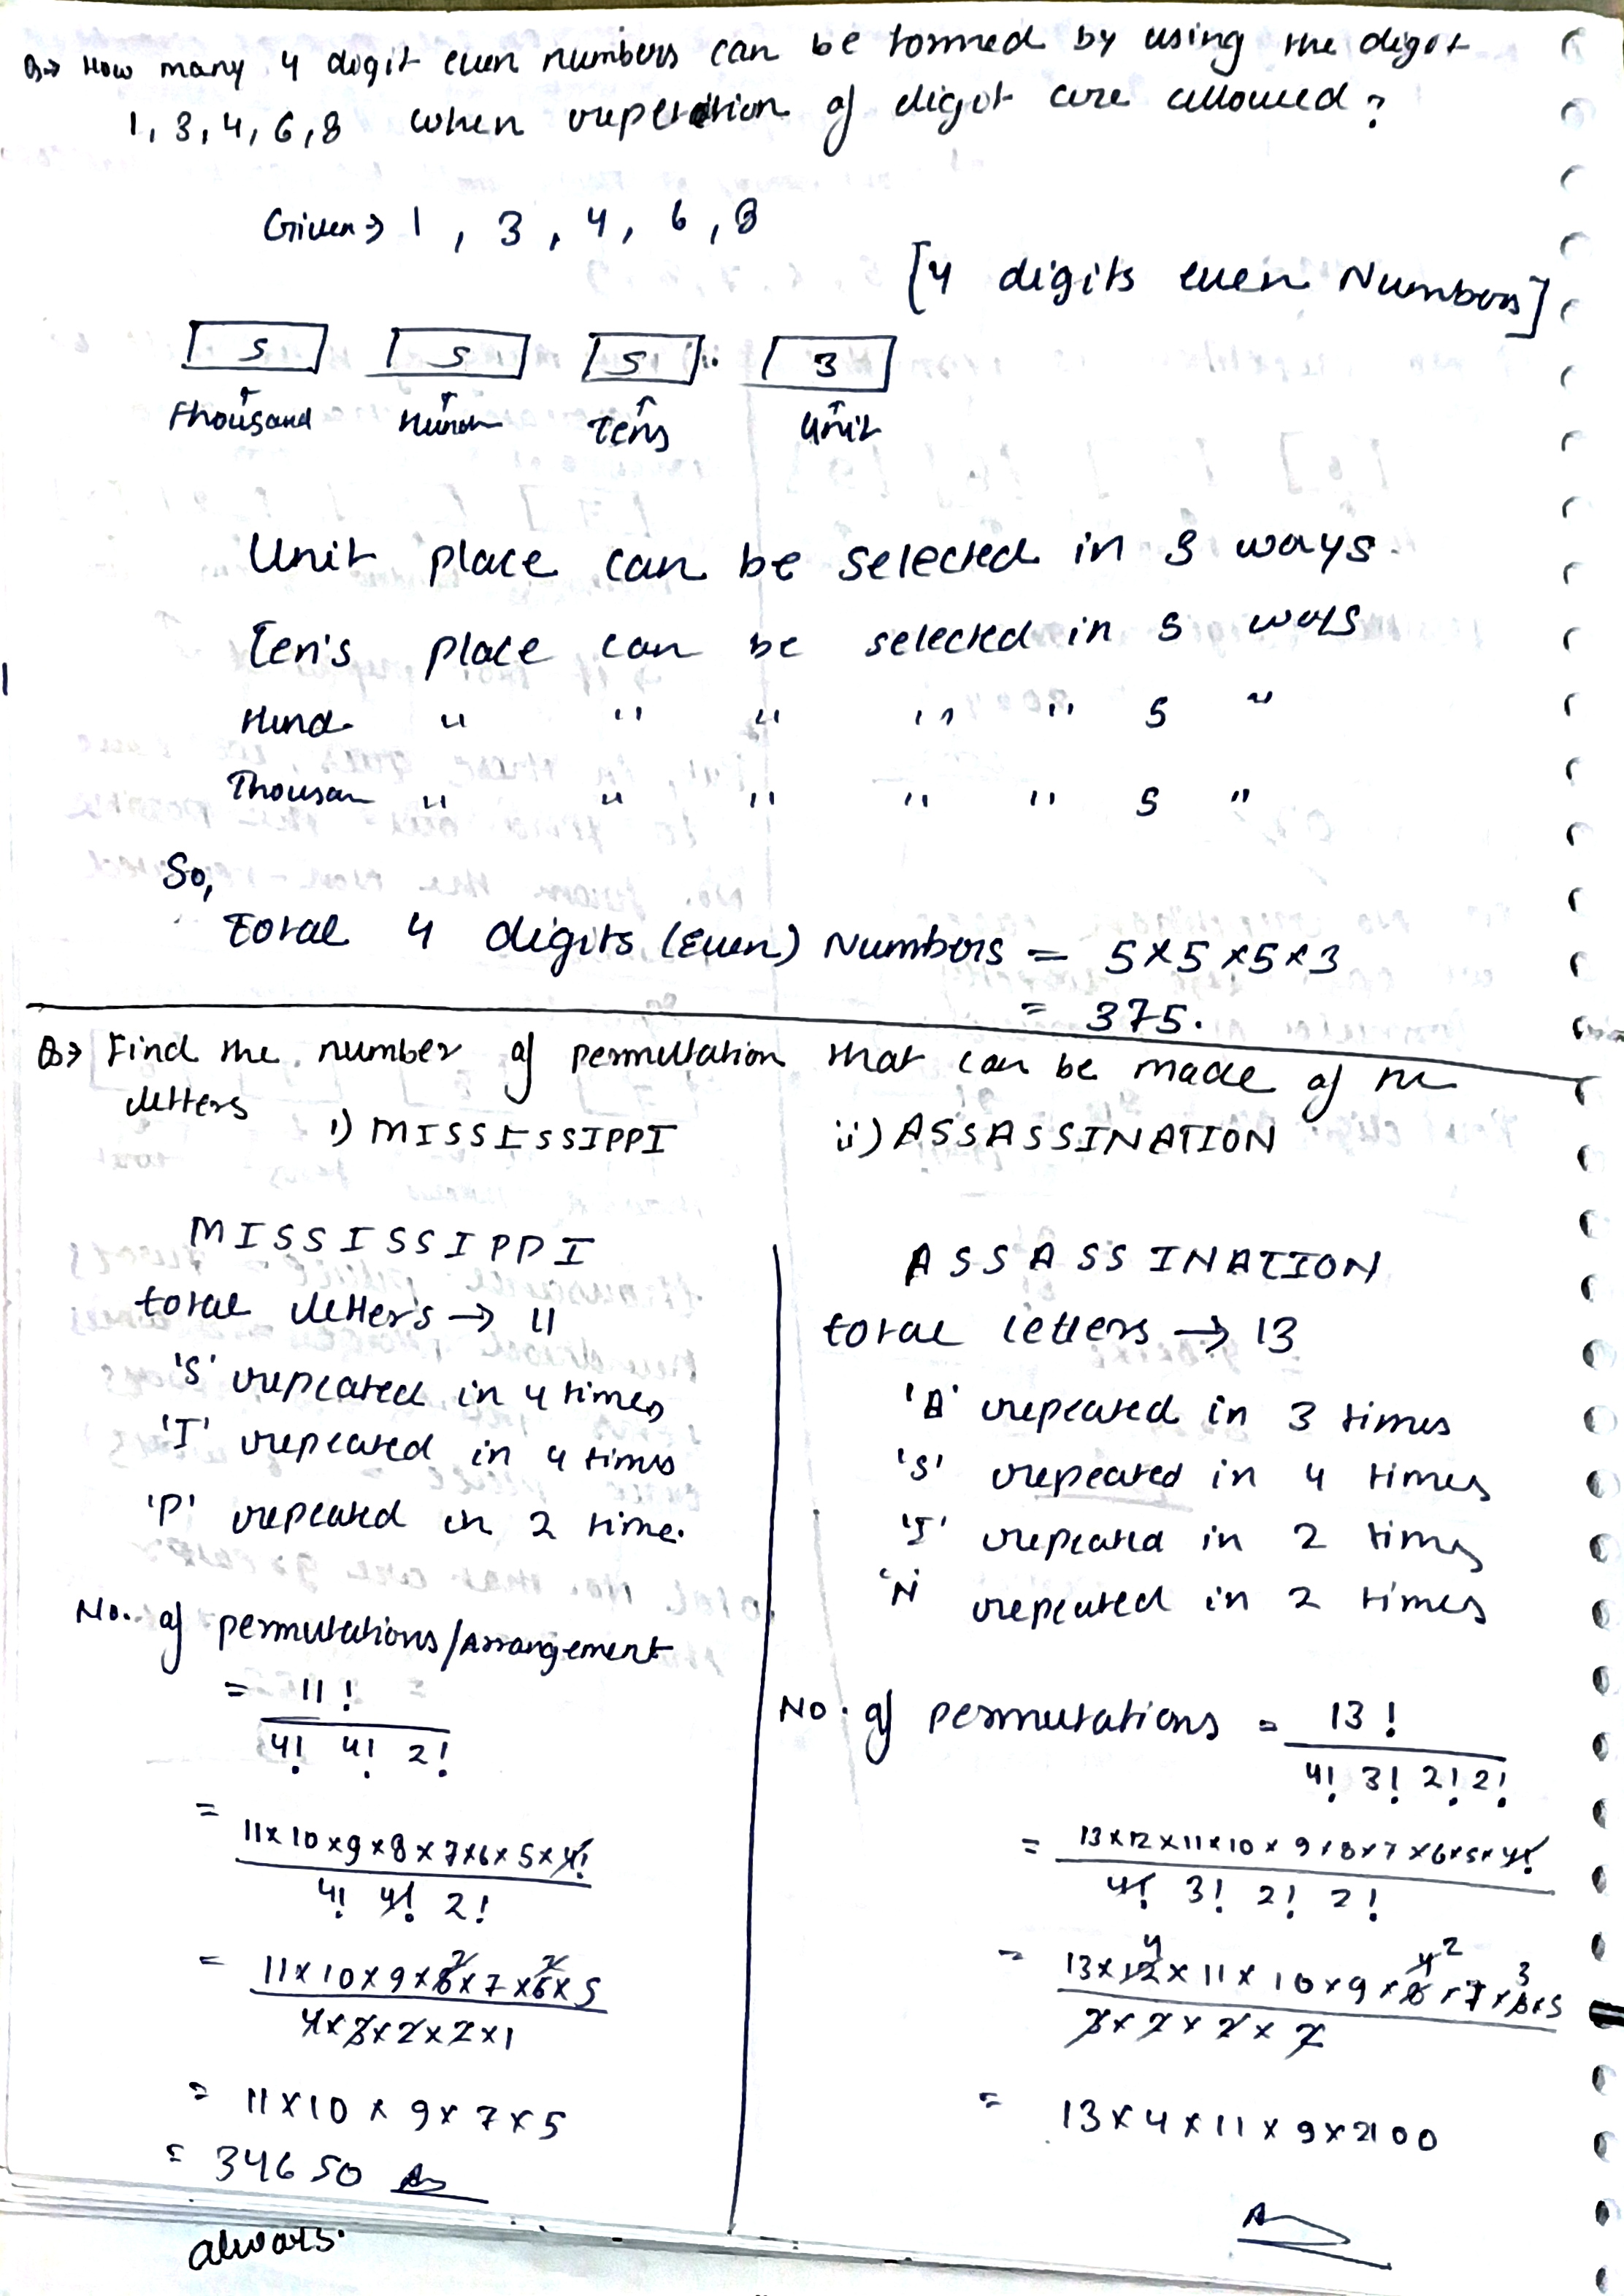 Q→ How many 4 digit even numbers can be formed by using the digit
1, 3, 4, 6, 8 when repetition of digit are allowed?
Given → 1, 3, 4, 6, 8
[4 digits even Numbers]
5 5 5 3
Thousand Hund Tens Unit
Unit place can be selected in 3 ways.
Ten's place can be selected in 5 ways
Hund " " " " " 5 "
Thousan " " " " " 5 "
So,
Total 4 digits (Even) Numbers = 5×5×5×3
= 375.
Q→ Find the number of permutation that can be made of the
letters i) MISSISSIPPI ii) ASSASSINATION
MISSISSIPPI
total letters → 11
'S' repeated in 4 times
'I' repeated in 4 times
'P' repeated in 2 time.
No. of permutations/Arrangement
= 11!
4! 4! 2!
= 11×10×9×8×7×6×5×4!
4! 4! 2!
= 11×10×9×8×7×6×5
4×3×2×2×1
= 11×10×9×7×5
= 34650 Ans
ASSASSINATION
total letters → 13
'A' repeated in 3 times
'S' repeated in 4 times
'I' repeated in 2 times
'N' repeated in 2 times
No. of permutations = 13!
4! 3! 2! 2!
= 13×12×11×10×9×8×7×6×5×4!
4! 3! 2! 2!
= 13×12×11×10×9×8×7×6×5
4 4 2 3
3×2×2×2
= 13×4×11×9×2100
A
always.